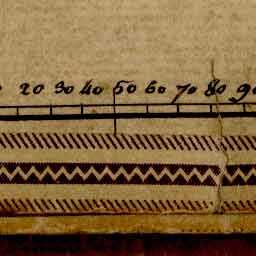 20 30 40 50 60 70 80